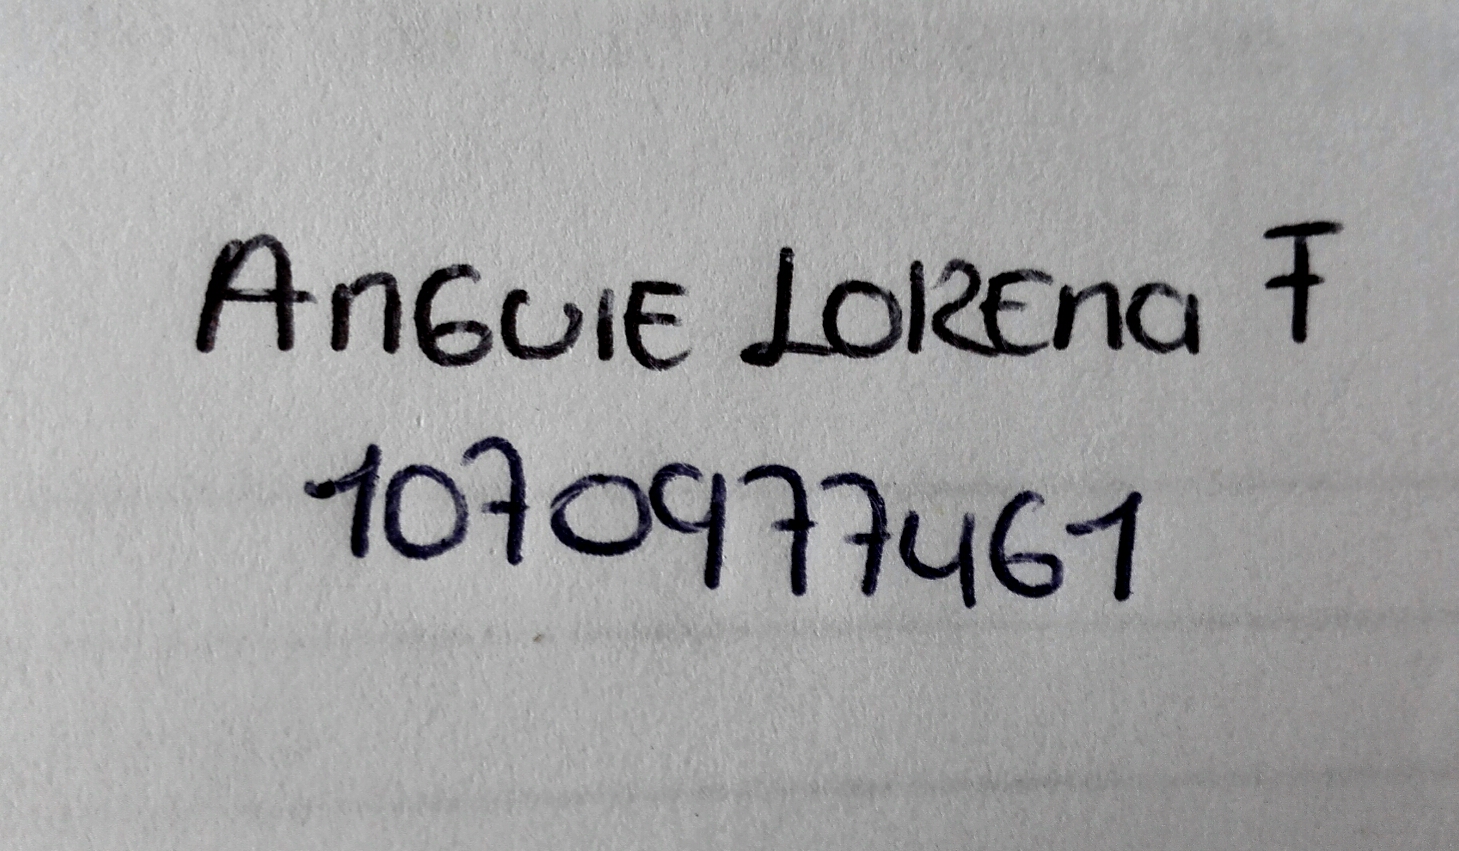 ANGUIE LORENA F
1070977461